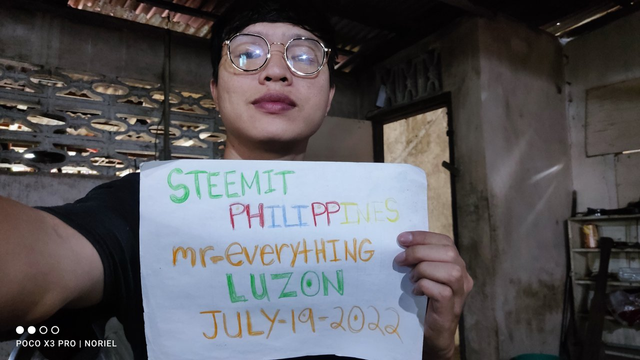 STEEMIT
PHILIPPINES
mr-everyTHING
LUZON
JULY-19-2022
POCO X3 PRO | NORIEL